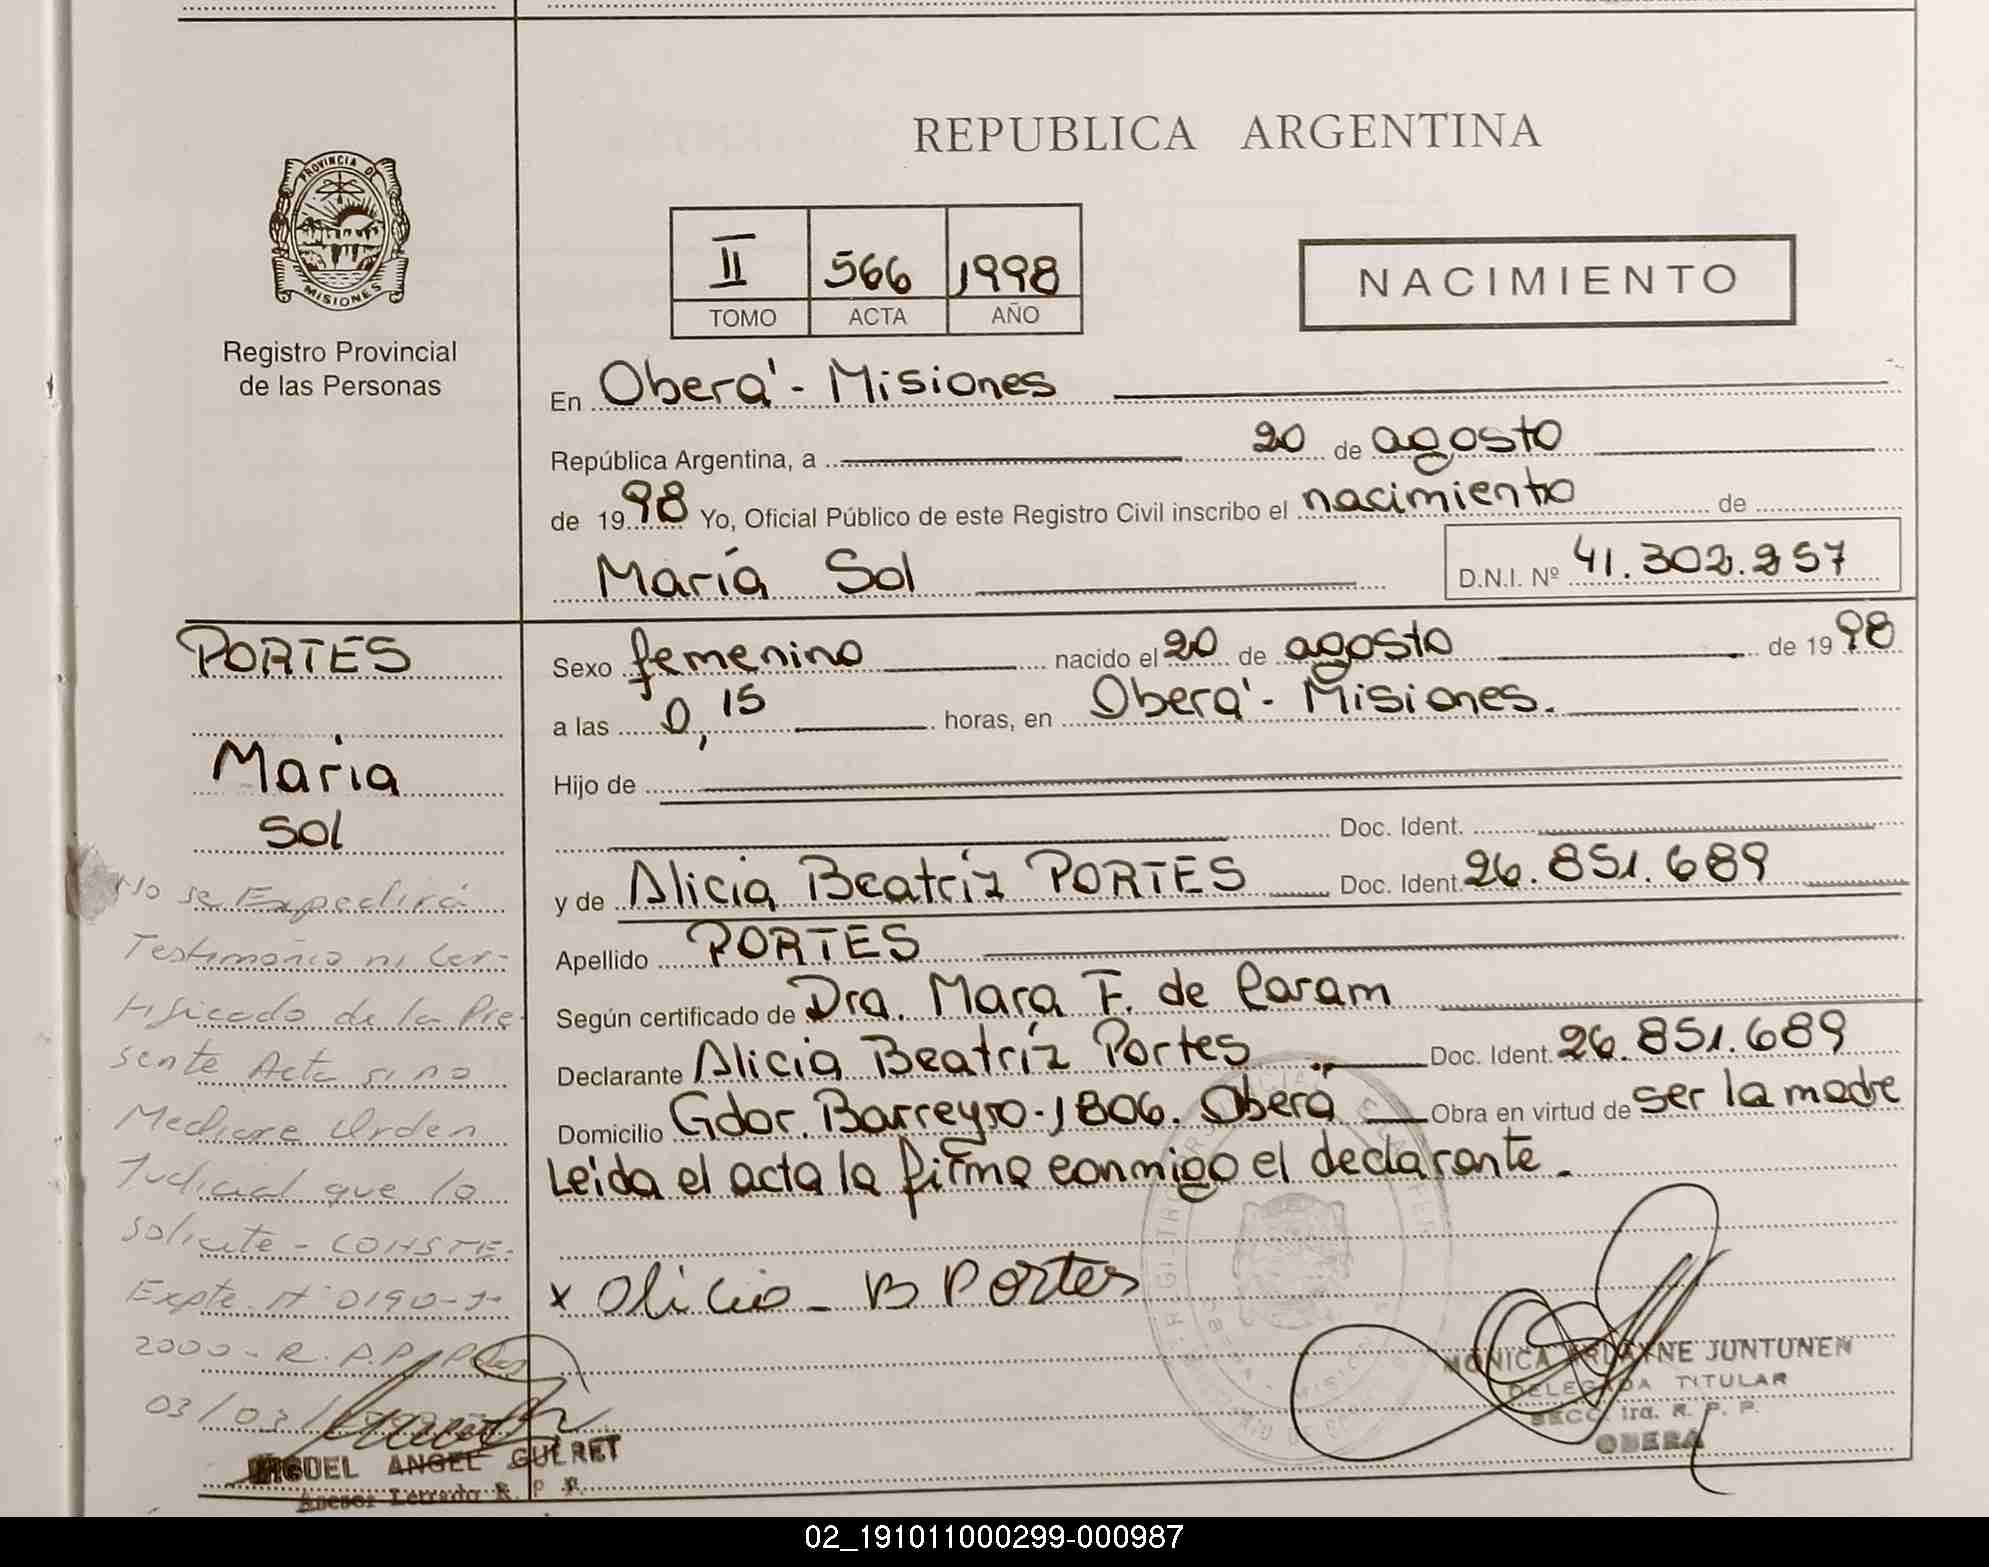 REPUBLICA ARGENTINA
PROVINCIA DE
MISIONES
Registro Provincial
de las Personas
II 566 1998
TOMO ACTA AÑO
NACIMIENTO
En Oberá - Misiones
República Argentina, a 20 de agosto
de 19 98 Yo, Oficial Público de este Registro Civil inscribo el nacimiento de
María Sol D.N.I. Nº 41.302.257
PORTES
Maria
Sol
Sexo femenino nacido el 20 de agosto de 19 98
a las 0,15 horas, en Oberá - Misiones.
Hijo de
Doc. Ident.
y de Alicia Beatríz PORTES Doc. Ident. 26.851.689
Apellido PORTES
Según certificado de Dra. Mara F. de
Declarante Alicia Beatríz Portes Doc. Ident. 26.851.689
Domicilio Gdor. Barreyro-1806. Oberá Obra en virtud de ser la madre
Leida el acta la firma conmigo el declarante.
x Alicia B Portes
No se Expedirá
Testimonio ni Cer-
tificado de la Pre-
sente Acta si no
Mediare Orden
Judicial que lo
solicite - CONSTE.
Expte. Nº 0190-
2000 - R.P.P.
03/03/
MIGUEL ANGEL GUERET
Asesor Letrado R. P. P.
MONICA JUNTUNEN
DELEGADA TITULAR
SECC. 1ra. R. P. P.
OBERA
02_191011000299-000987